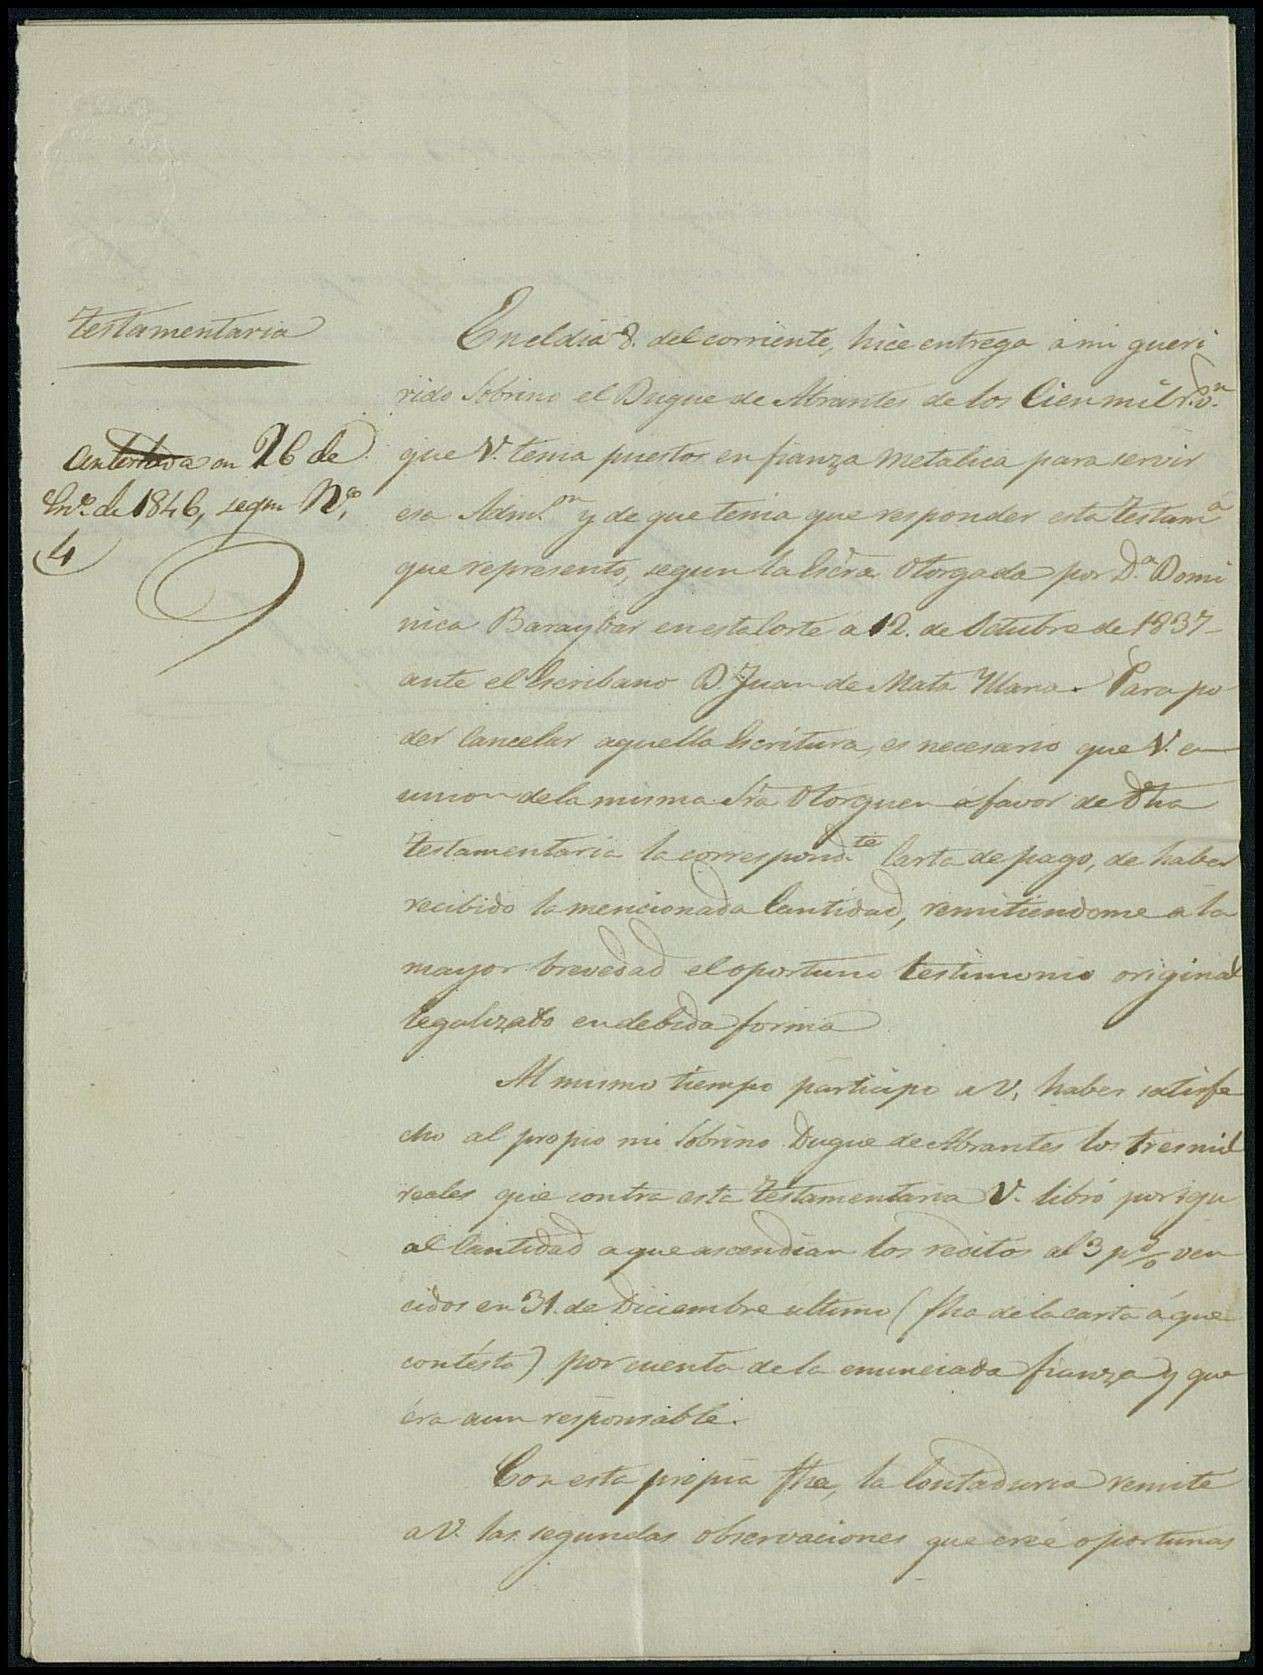 Testamentaria
Contestada en 26 de
En.º de 1846, segun N.º
4
En el dia 8. del corriente, hice entrega á mi queri
rido Sobrino el Duque de Abrantes de los Cien mil r.s v.n
que V. tenia puestos en fianza metalica para servir
esa Adm.on y de que tenia que responder esta Testam.a
que represento, segun la Escra. Otorgada por D.a Domi
nica Baraybar en esta Corte a 12. de Octubre de 1837-
ante el Escribano D Juan de Mata Yllana. Para po
der Cancelar aquella Escritura, es necesario que V. en
union de la misma Sra Otorguen á favor de dha
Testamentaria la correspond.te Carta de pago, de haber
recibido la mencionada Cantidad, remitiendome a la
mayor brevedad el oportuno testimonio original
legalizado en debida forma
Al mismo tiempo participo a V, haber satisfe
cho al propio mi Sobrino Duque de Abrantes los tres mil
reales que contra esta Testamentaria V. libró por igu
al Cantidad a que ascendian los reditos al 3 p% ven
cidos en 31. de Diciembre ultimo (fha de la carta á que
contésto) por cuenta de la enunciada fianza y que
éra aun résponsable.
Con esta propia fha, la Contaduria remite
a V. las segundas observaciones que creé oportunas